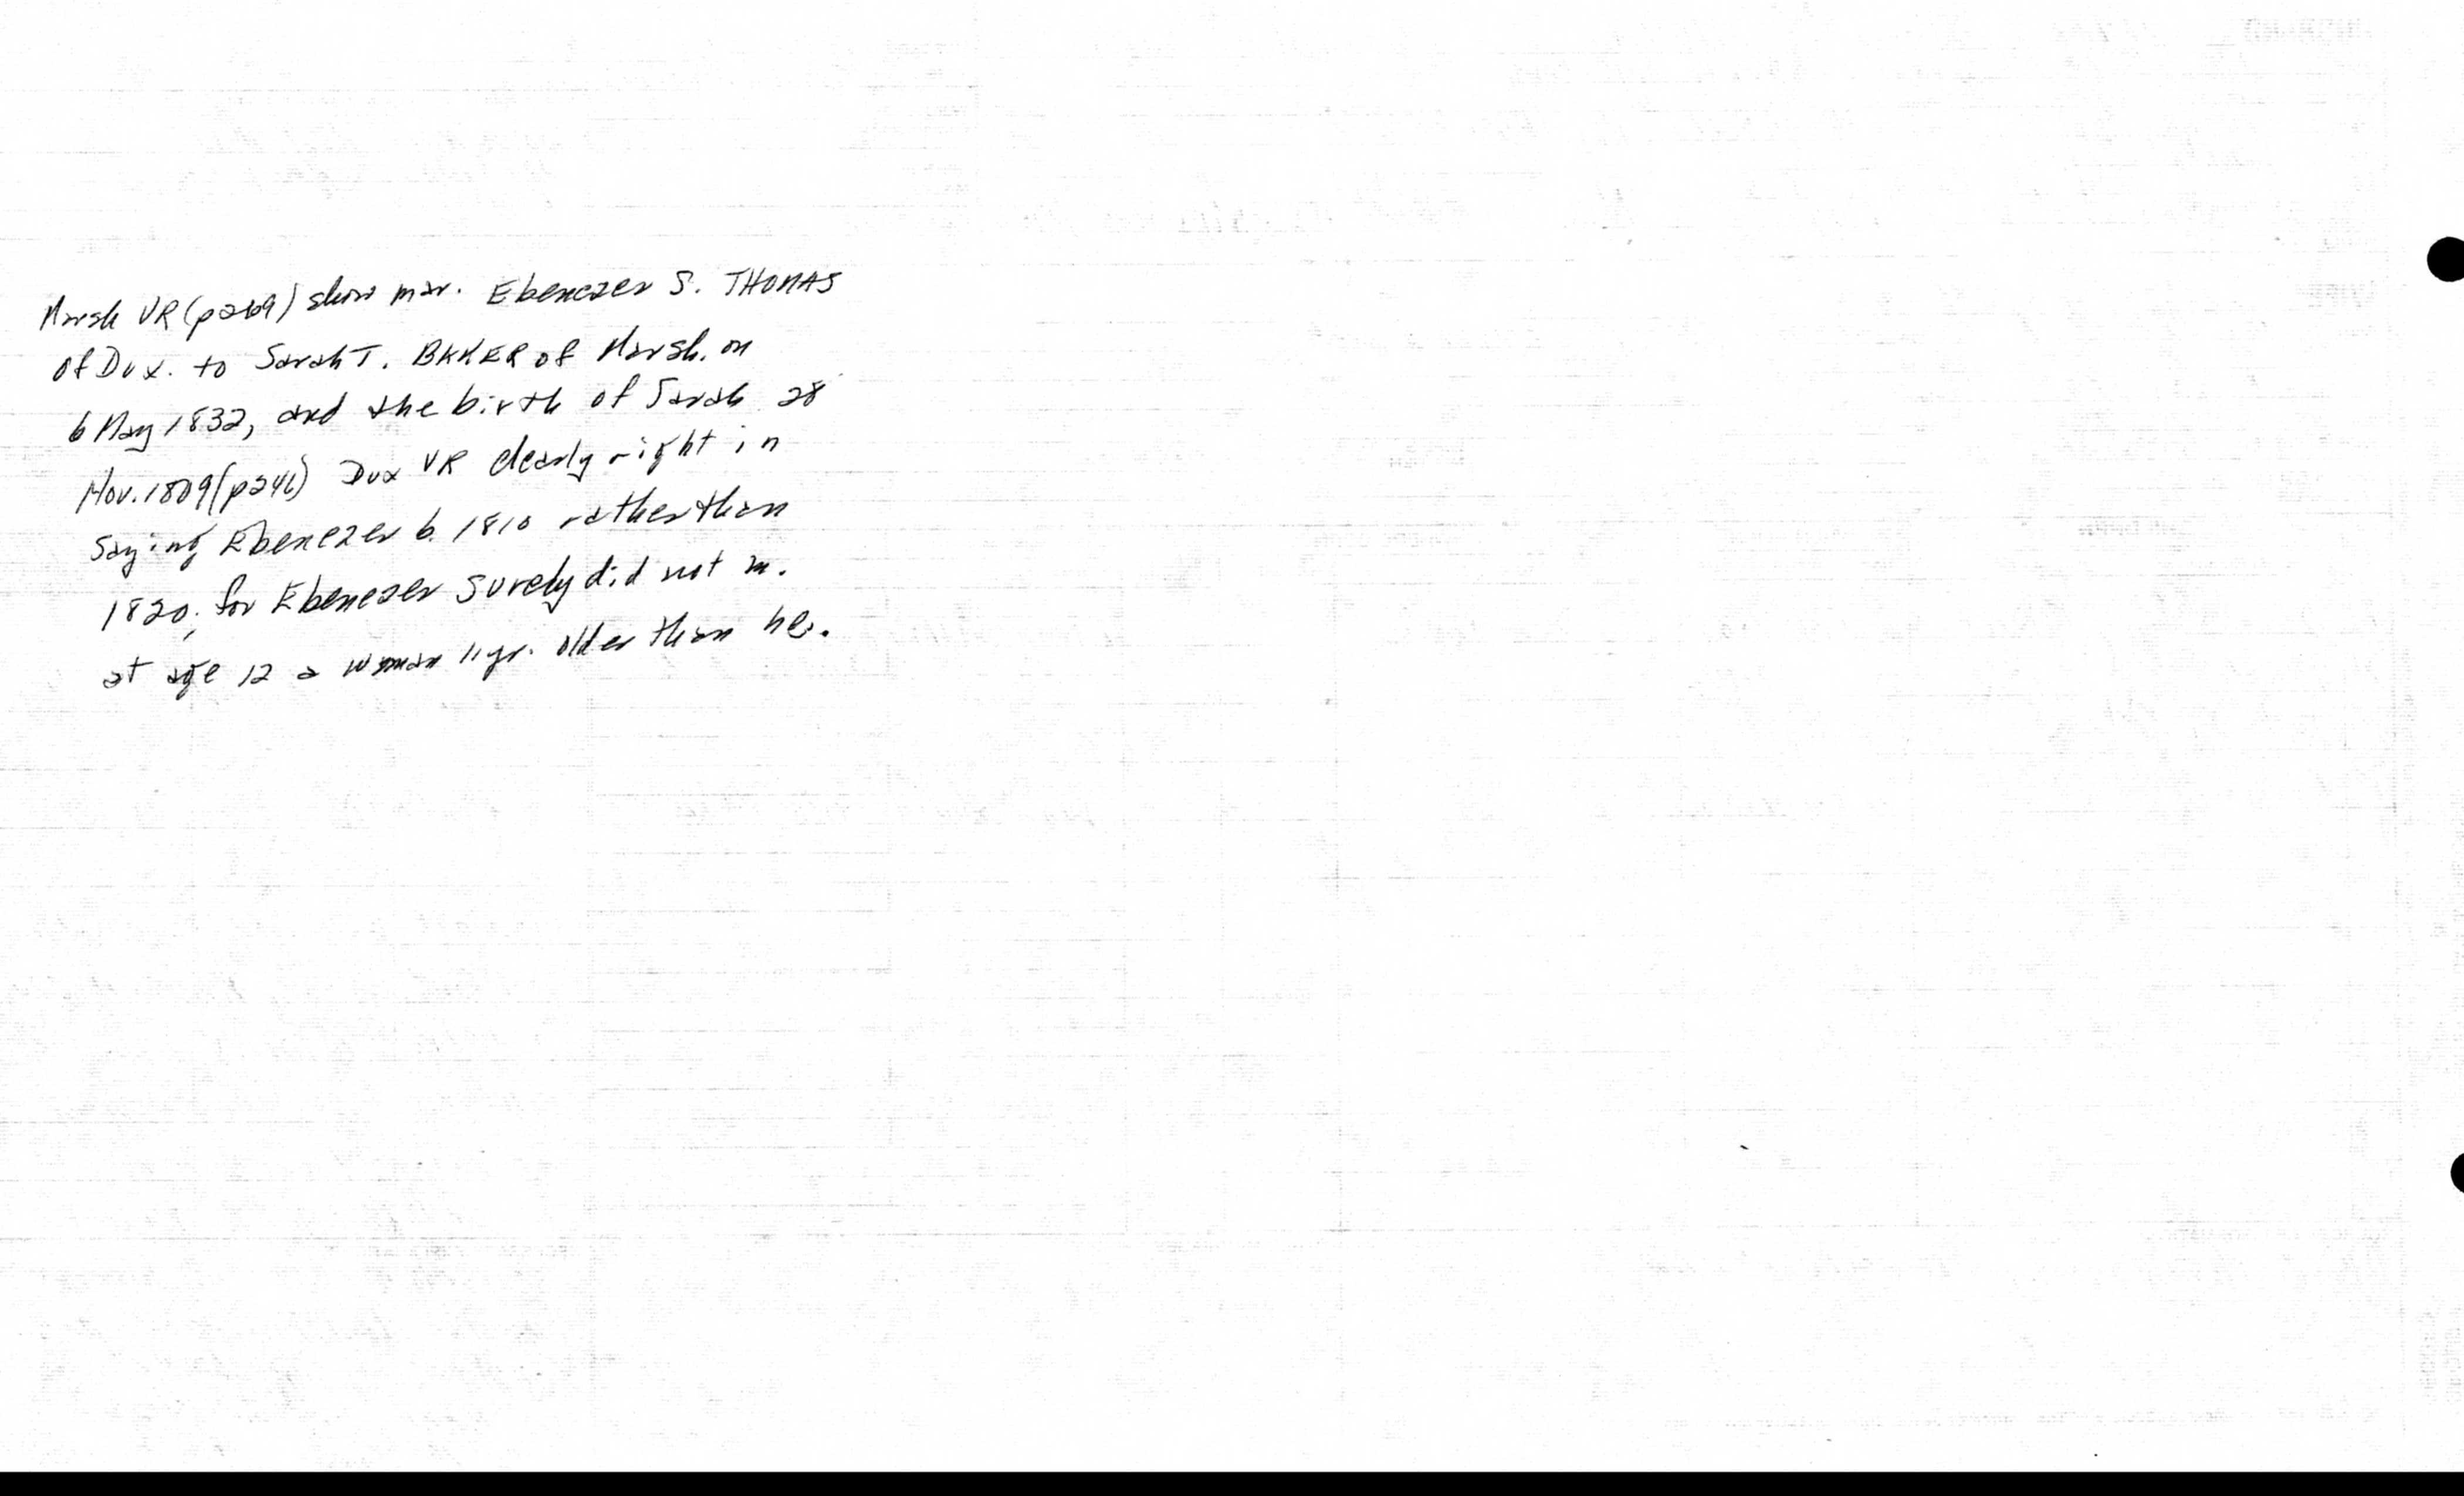 Marsh VR (p269) show mar. Ebenezer S. THOMAS
of Dux. to Sarah T. BAKER of Marsh. on
6 May 1832, and the birth of Sarah 28
Nov. 1809 (p246) Dux VR clearly right in
saying Ebenezer b. 1810 rather than
1820; for Ebenezer surely did not m.
at age 12 a woman 11 yr. older than he.